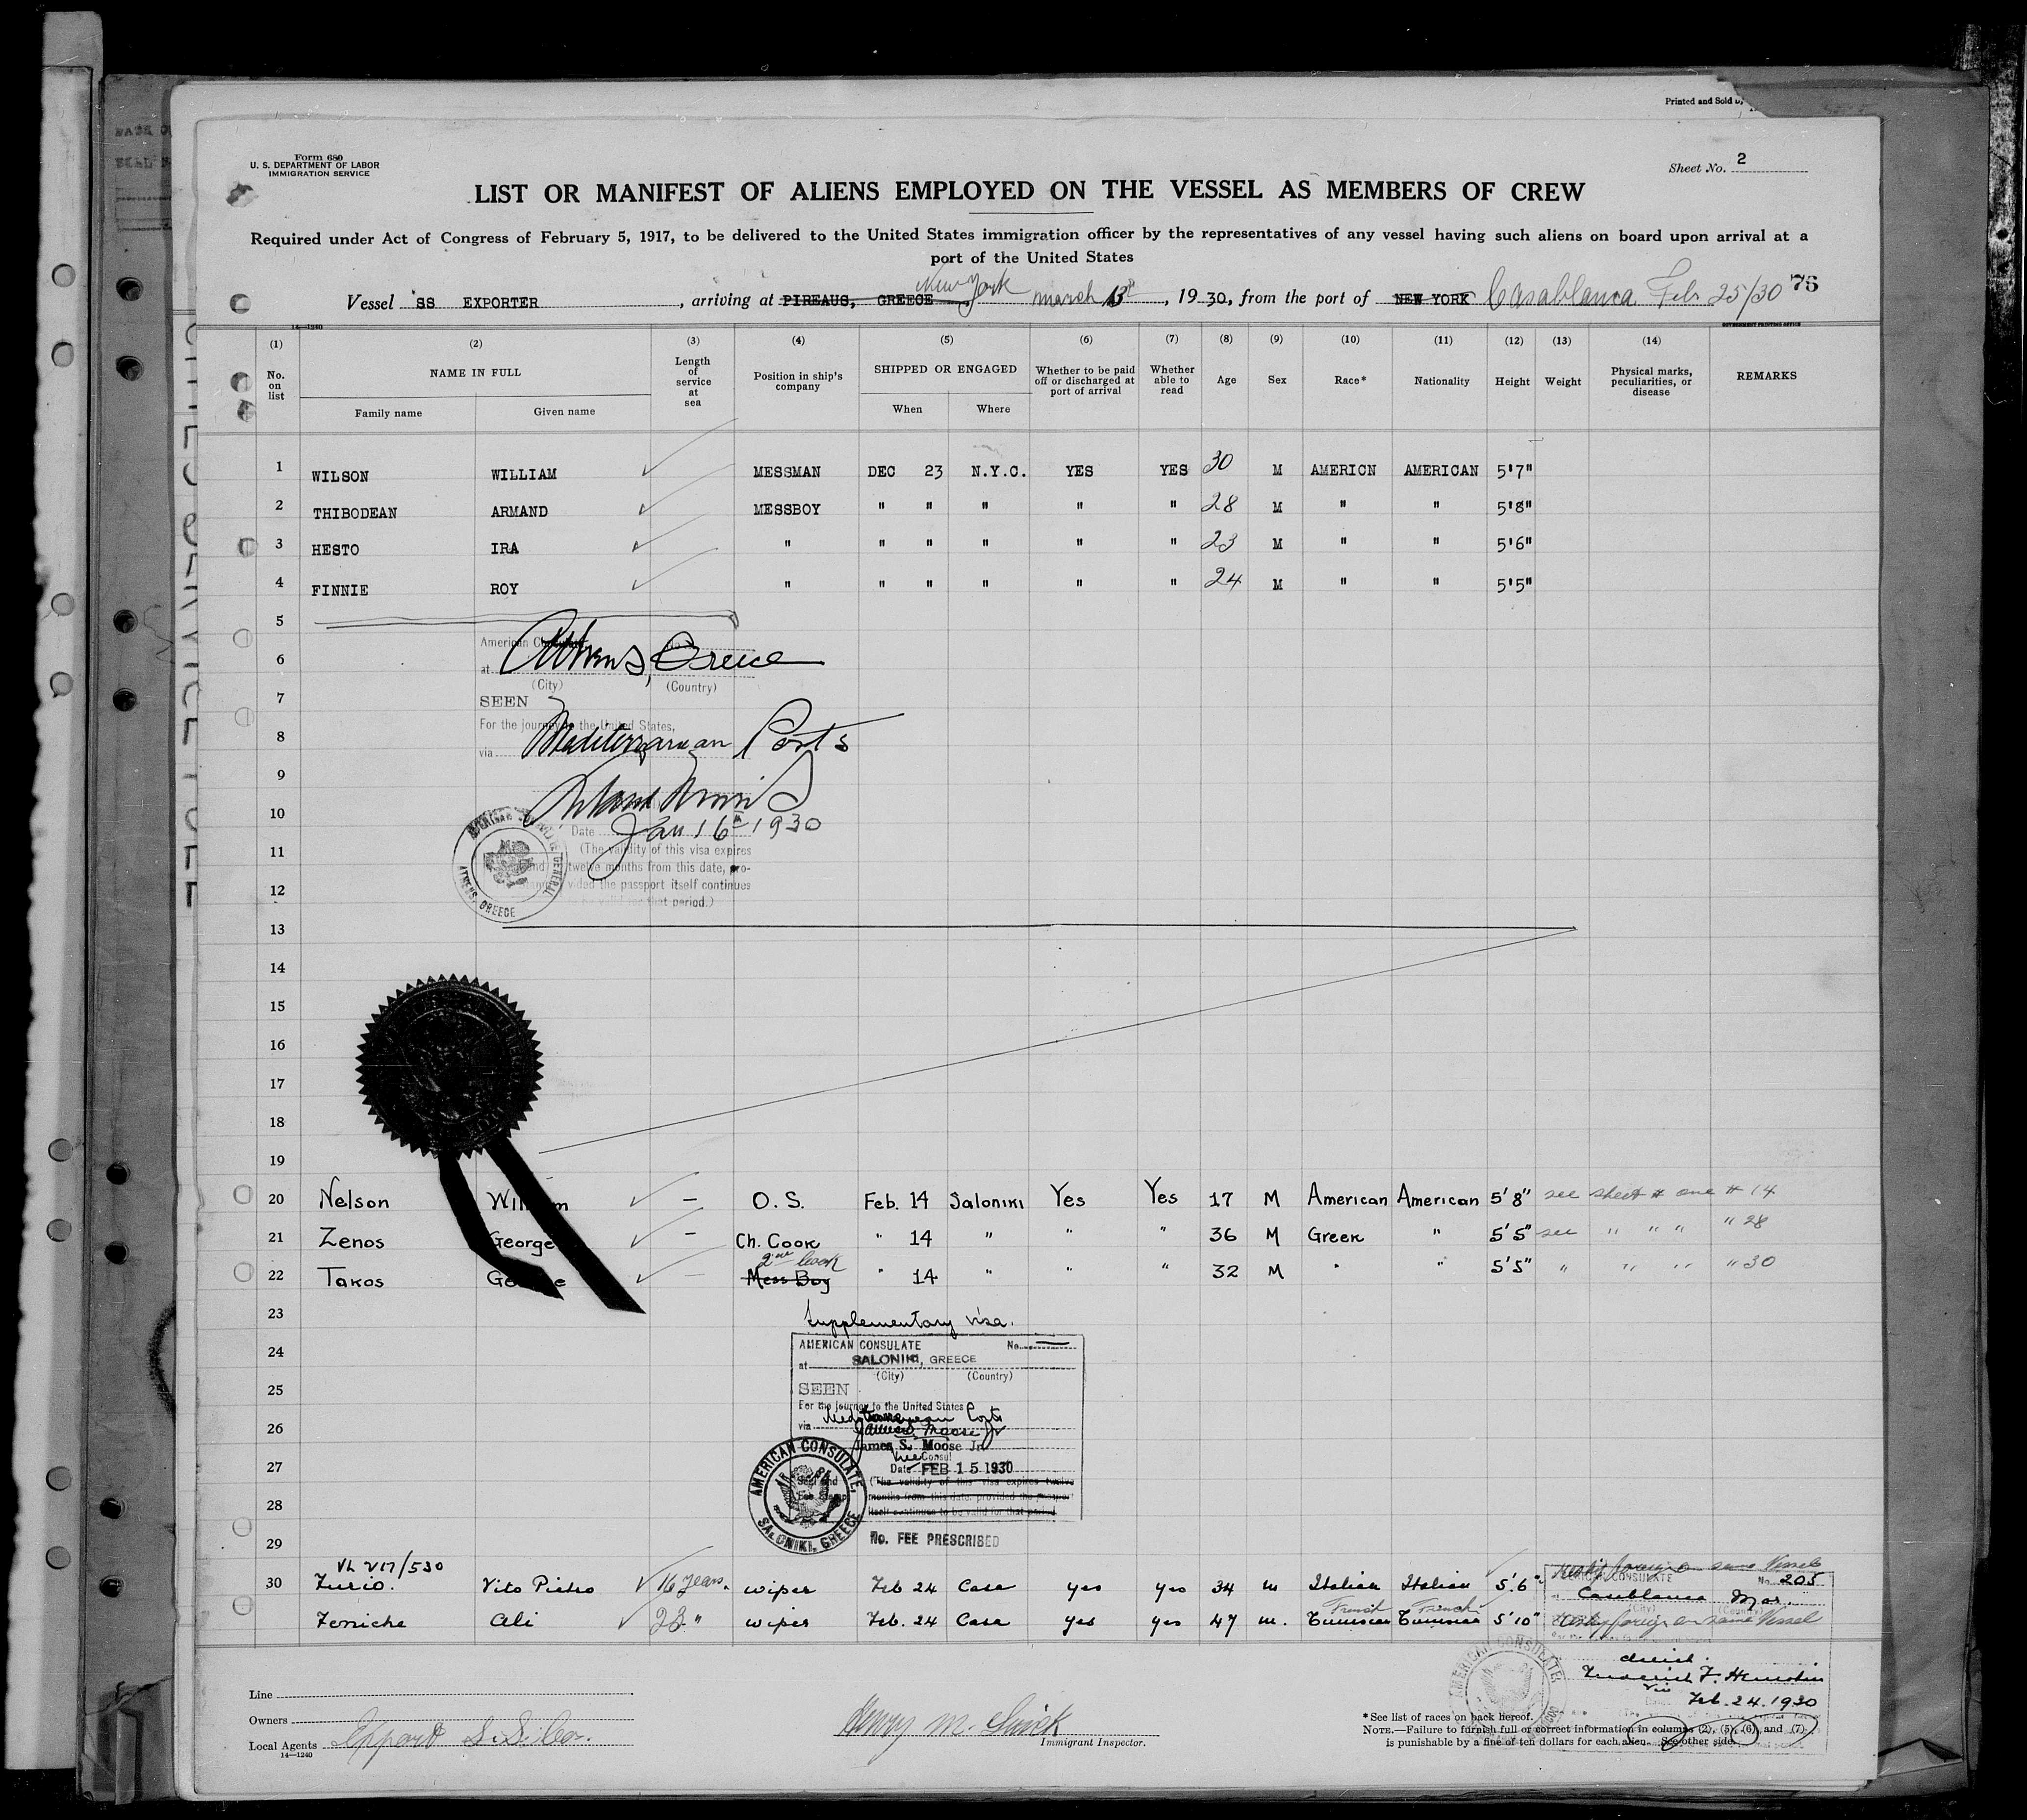 Printed and Sold b
Form 680
U. S. DEPARTMENT OF LABOR
IMMIGRATION SERVICE
Sheet No. 2
LIST OR MANIFEST OF ALIENS EMPLOYED ON THE VESSEL AS MEMBERS OF CREW
Required under Act of Congress of February 5, 1917, to be delivered to the United States immigration officer by the representatives of any vessel having such aliens on board upon arrival at a
port of the United States
Vessel SS EXPORTER, arriving at PIREAUS, GREECE New York march 13th, 1930, from the port of NEW YORK Casablanca Feb 25/30 76
14—1240 GOVERNMENT PRINTING OFFICE
(1) (2) (3) (4) (5) (6) (7) (8) (9) (10) (11) (12) (13) (14)
No. on list NAME IN FULL Family name Given name Length of service at sea Position in ship's company SHIPPED OR ENGAGED When Where Whether to be paid off or discharged at port of arrival Whether able to read Age Sex Race* Nationality Height Weight Physical marks, peculiarities, or disease REMARKS
1 WILSON WILLIAM MESSMAN DEC 23 N.Y.C. YES YES 30 M AMERICN AMERICAN 5'7"
2 THIBODEAN ARMAND MESSBOY " " " " " 28 M " " 5'8"
3 HESTO IRA " " " " " " 23 M " " 5'6"
4 FINNIE ROY " " " " " " 24 M " " 5'5"
5
American
6 at Athens, Greece
(City) (Country)
7 SEEN
For the journey to the United States,
8 via Mediterranean Ports
9
10 Date Jan 16th 1930
11 (The validity of this visa expires
twelve months from this date, pro-
12 vided the passport itself continues
to be valid for that period.)
ATHENS, GREECE
13
14
15
16
17
18
19
20 Nelson William — O. S. Feb. 14 Saloniki Yes Yes 17 M American American 5'8" see sheet # one # 14
21 Zenos George — Ch. Cook " 14 " " " 36 M Greek " 5'5" see " " " " 28
2nd Cook
22 Takos George — Mess Boy " 14 " " " 32 M " " 5'5" " " " " 30
23 Supplementary visa.
24 AMERICAN CONSULATE No.
at SALONIKI, GREECE
(City) (Country)
25 SEEN
For the journey to the United States
26 via Mediterranean Ports
James S. Moose Jr
James S. Moose Jr.
27 Vice Consul
Date FEB 15 1930
(The validity of this visa expires twelve
28 months from this date, provided the passport
itself continues to be valid for that period.
AMERICAN CONSULATE, SALONIKI, GREECE
29 No. FEE PRESCRIBED
30 Zurio. Vito Pietro 16 years. wiper Feb 24 Casa yes yes 34 m Italian Italian 5'6"
CONSULATE No. 205
Casablanca Mor.
French French
Feniche Ali 28 " wiper Feb. 24 Casa yes yes 47 m. Tunisian Tunisian 5'10" foreign on same Vessel
AMERICAN CONSULATE
Feb. 24. 1930
Line
Owners
Local Agents Export S. S. Co.
14—1240
Immigrant Inspector.
* See list of races on back hereof.
NOTE.—Failure to furnish full or correct information in columns (2), (5), (6), and (7)
is punishable by a fine of ten dollars for each alien. See other side.